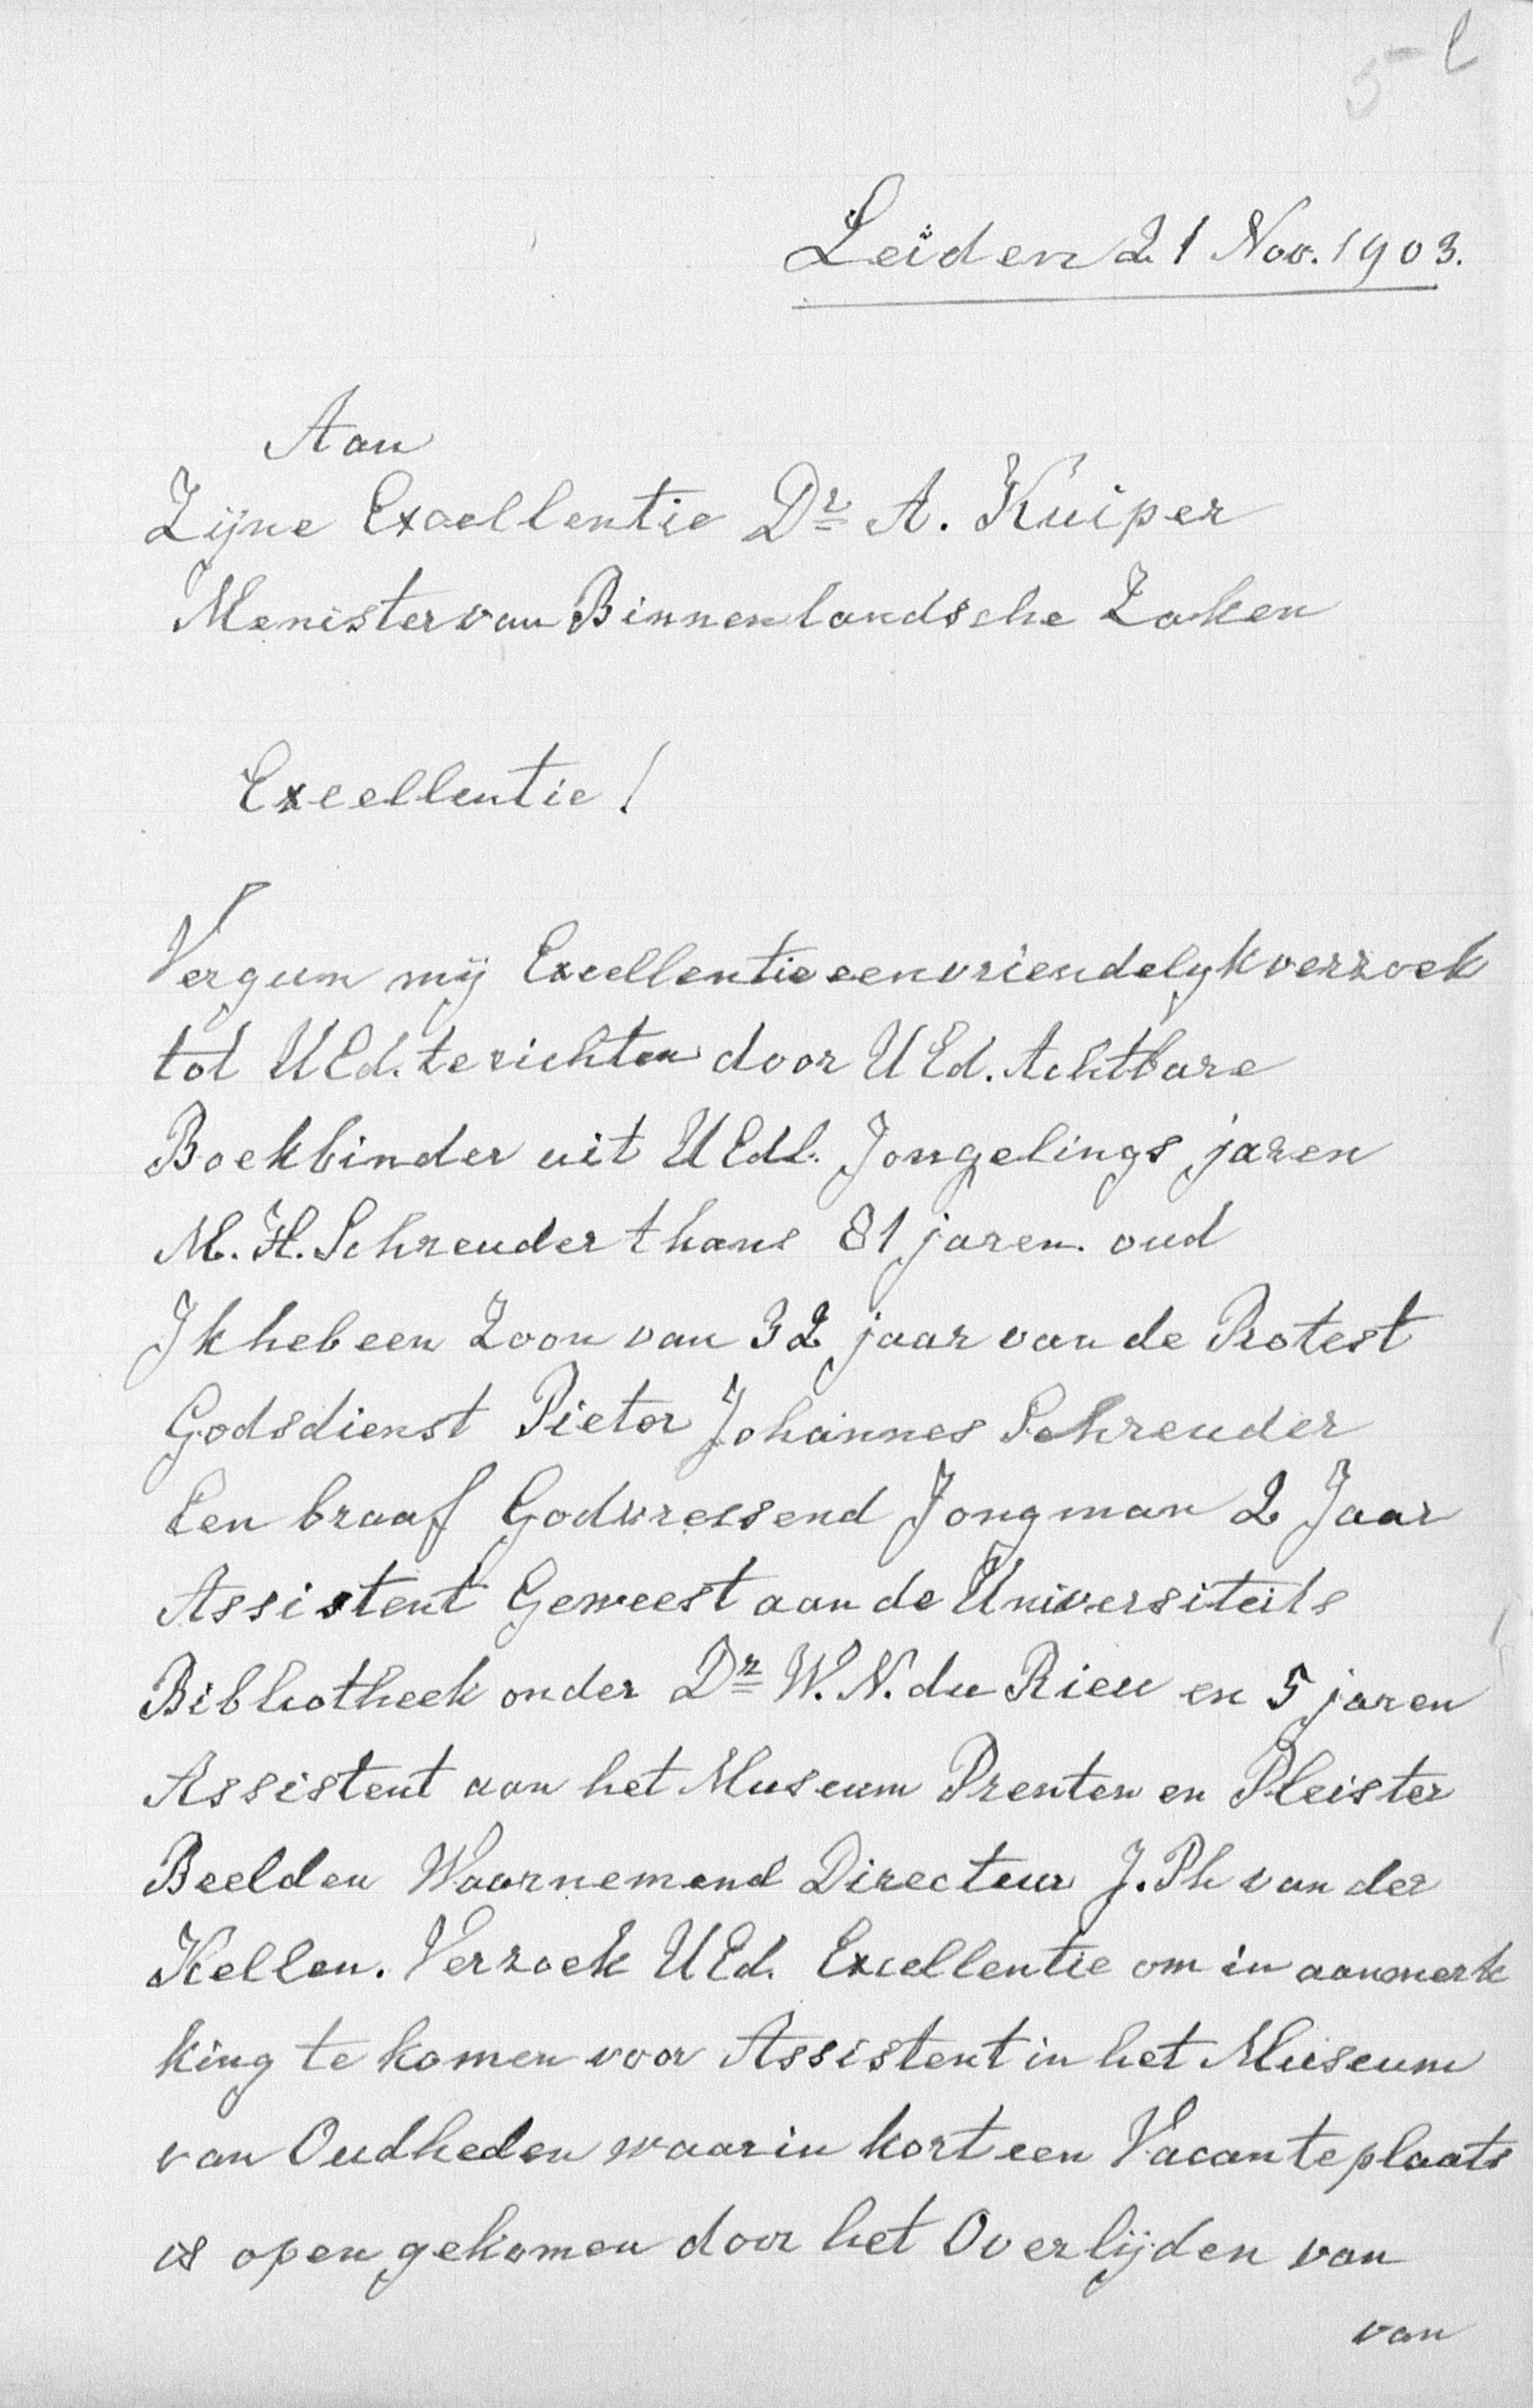 5 l
Leiden 21 Nov. 1903.
Aan
Zijne Excellentie Dr A. Kuiper
Menister van Binnenlandsche Zaken
Excellentie!
Vergun mij Excellentie een vriendelijk verzoek
tot UEd. te richten door UEd. Achtbare
Boekbinder uit UEdl. Jongelings jaren
M. H. Schreuder thans 81 jaren oud
Ik heb een Zoon van 32 jaar van de Protest
Godsdienst Pieter Johannes Schreuder
Een braaf Godvresend Jongman 2 Jaar
Assistent Geweest aan de Universiteits
Bibliotheek onder Dr W. N. du Rieu en 5 jaren
Assistent aan het Museum Prenten en Pleister
Beelden Waarnemend Directeur J. Ph van der
Kellen. Verzoek UEd. Excellentie om in aanmerk
king te komen voor Assistent in het Museum
van Oudheden waarin kort een Vacante plaats
is open gekomen door het Overlijden van
van